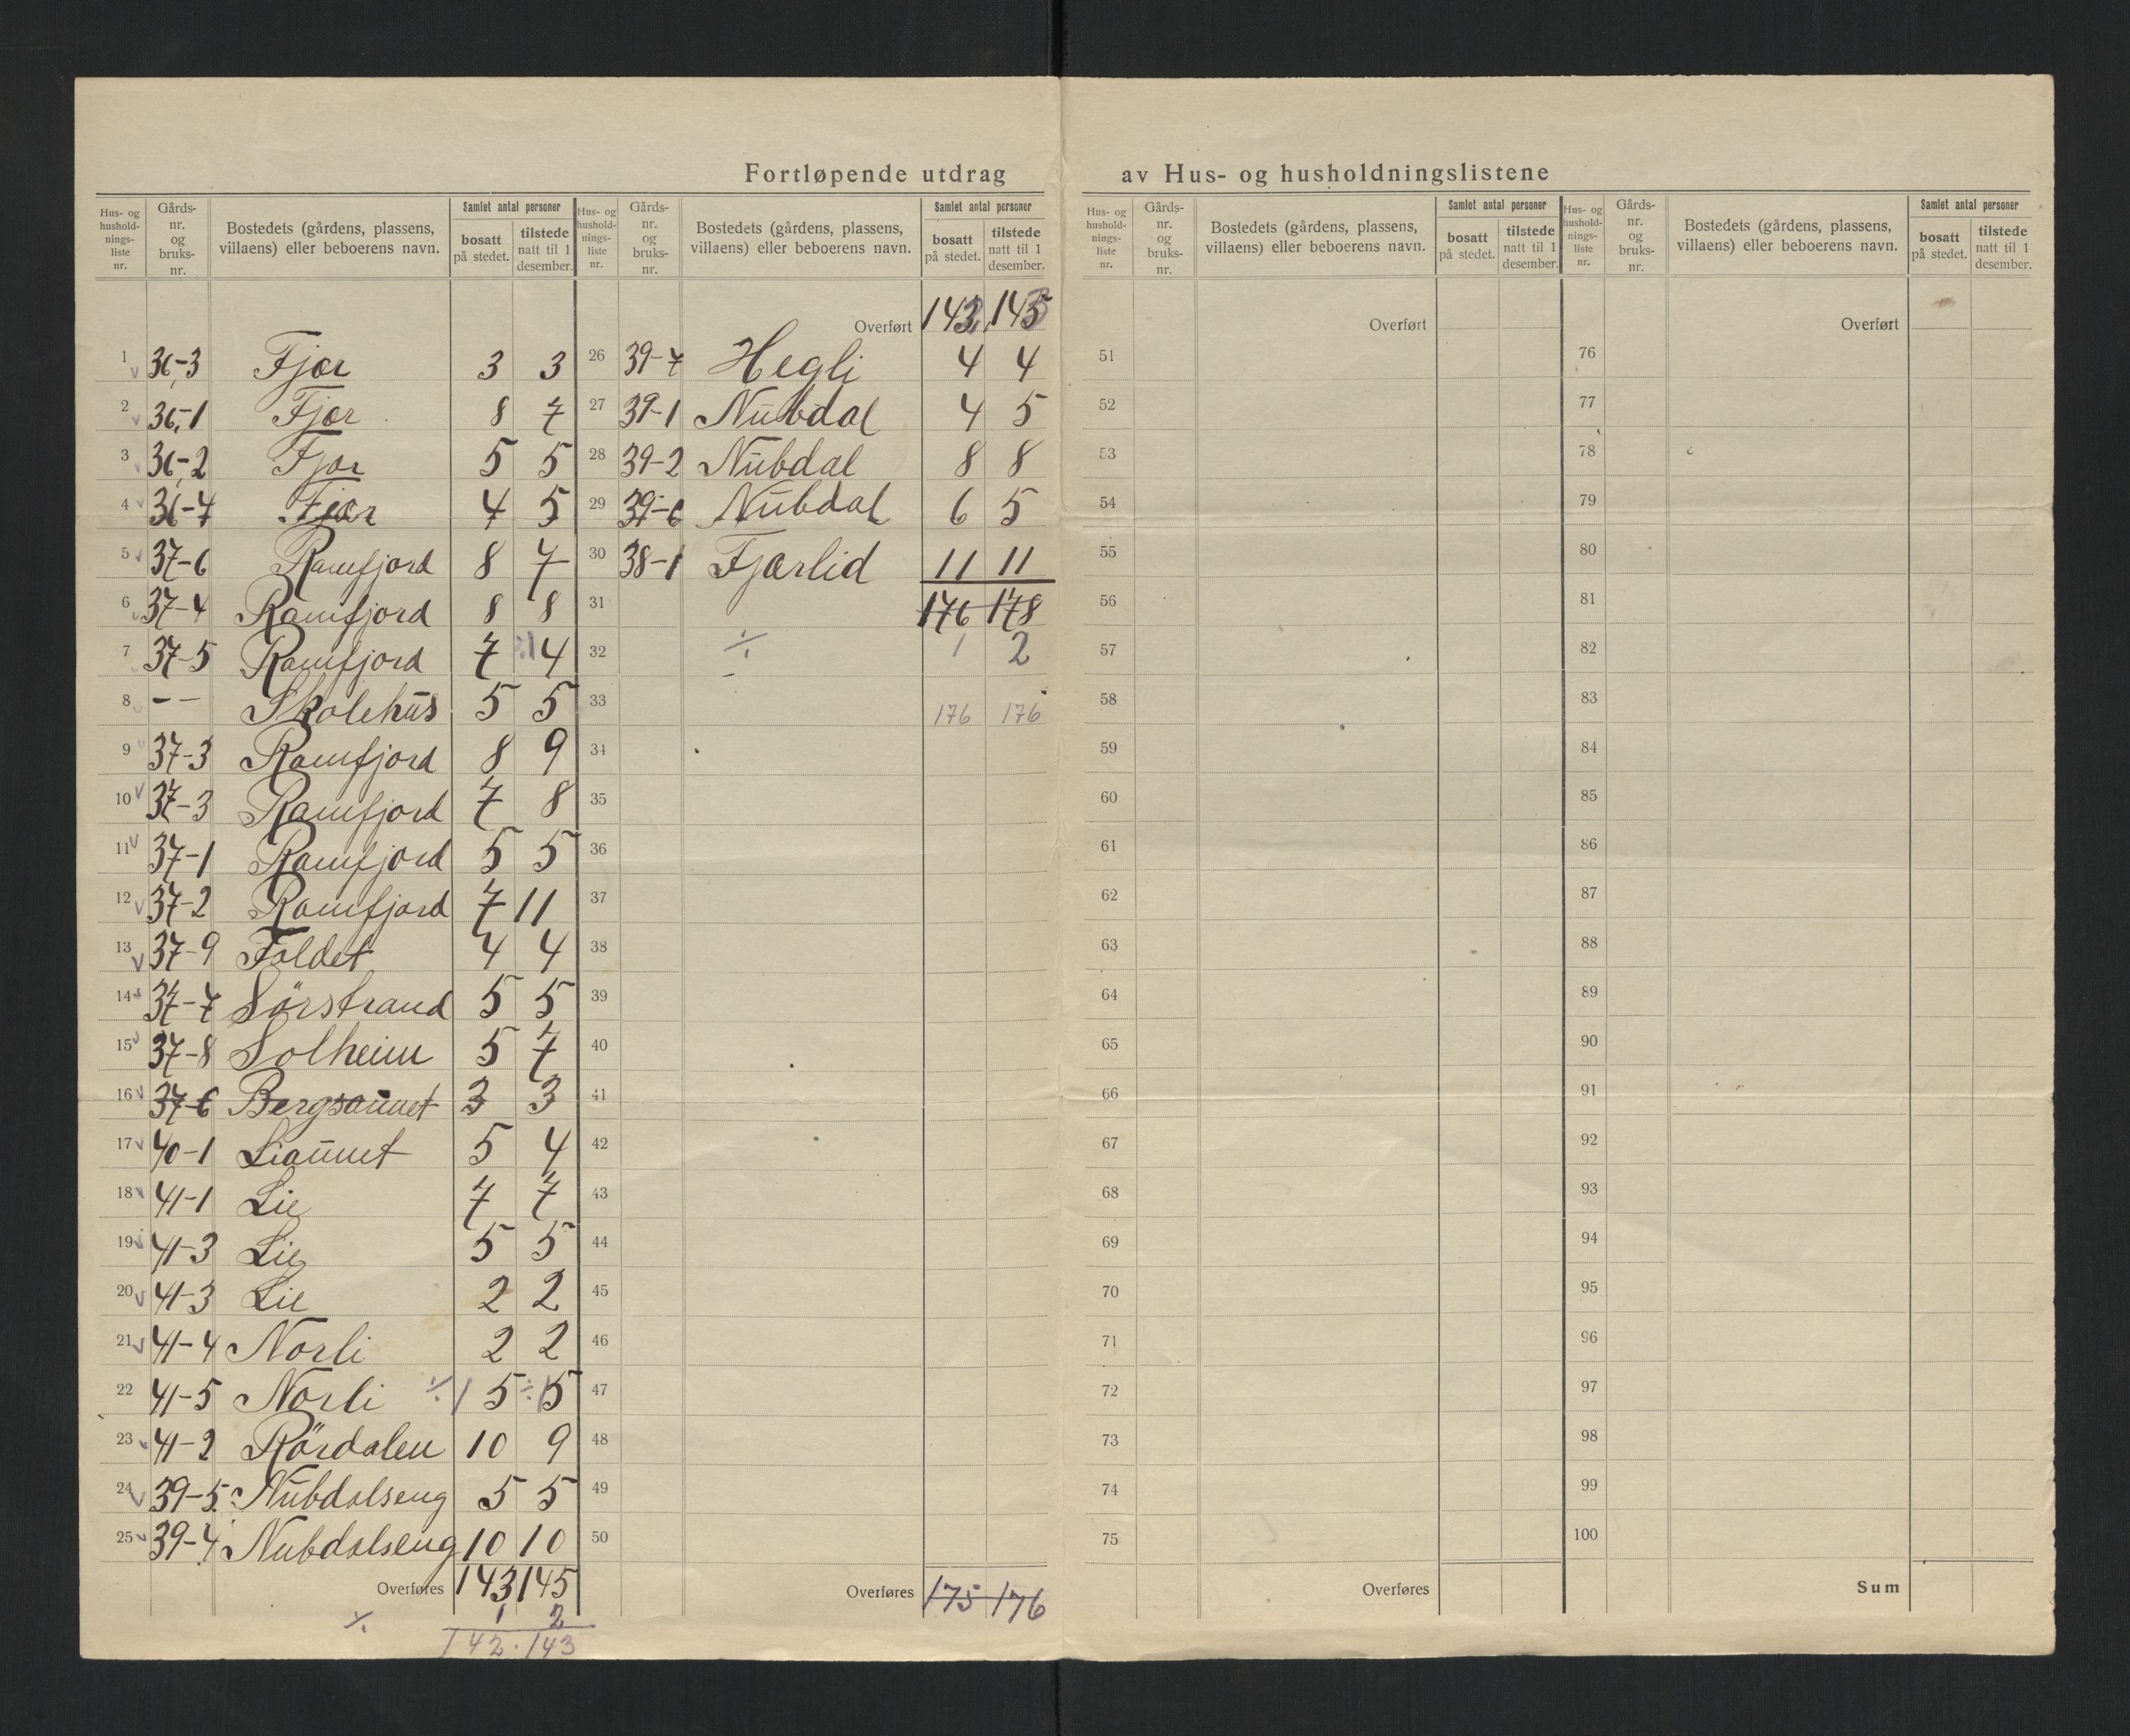 Fortløpende utdrag av Hus- og husholdningslistene
Hus- og hushold- nings- liste nr. Gårds- nr. og bruks- nr. Bostedets (gårdens, plassens, villaens) eller beboerens navn. Samlet antal personer bosatt på stedet. tilstede natt til 1 desember.
1 36-3 Fjær 3 3
2 36-1 Fjær 8 7
3 36-2 Fjær 5 5
4 36-4 Fjær 4 5
5 37-6 Ramfjord 8 7
6 37-4 Ramfjord 8 8
7 37-5 Ramfjord 7 ÷1 4
8 - - Skolehus 5 5
9 37-3 Ramfjord 8 9
10 37-3 Ramfjord 7 8
11 37-1 Ramfjord 5 5
12 37-2 Ramfjord 7 11
13 37-9 Foldet 4 4
14 37-7 Sörstrand 5 5
15 37-8 Solheim 5 7
16 37-6 Bergsaunet 3 3
17 40-1 Liaunet 5 4
18 41-1 Lie 7 7
19 41-3 Lie 5 5
20 41-3 Lie 2 2
21 41-4 Norli 2 2
22 41-5 Norli ÷1 5 ÷1 5
23 41-2 Rördalen 10 9
24 39-5 Nubdalseng 5 5
25 39-4 Nubdalseng 10 10
Overføres 143 145
÷ 1 2
142 143
Hus- og hushold- nings- liste nr. Gårds- nr. og bruks- nr. Bostedets (gårdens, plassens, villaens) eller beboerens navn. Samlet antal personer bosatt på stedet. tilstede natt til 1 desember.
Overført 143 145
26 39-7 Hegli 4 4
27 39-1 Nubdal 4 5
28 39-2 Nubdal 8 8
29 39-6 Nubdal 6 5
30 38-1 Fjærlid 11 11
31 176 178
32 ÷ 1 2
33 176 176
34
35
36
37
38
39
40
41
42
43
44
45
46
47
48
49
50
Overføres 175 176
Hus- og hushold- nings- liste nr. Gårds- nr. og bruks- nr. Bostedets (gårdens, plassens, villaens) eller beboerens navn. Samlet antal personer bosatt på stedet. tilstede natt til 1 desember.
Overført
51
52
53
54
55
56
57
58
59
60
61
62
63
64
65
66
67
68
69
70
71
72
73
74
75
Overføres
Hus- og hushold- nings- liste nr. Gårds- nr. og bruks- nr. Bostedets (gårdens, plassens, villaens) eller beboerens navn. Samlet antal personer bosatt på stedet. tilstede natt til 1 desember.
Overført
76
77
78
79
80
81
82
83
84
85
86
87
88
89
90
91
92
93
94
95
96
97
98
99
100
Sum